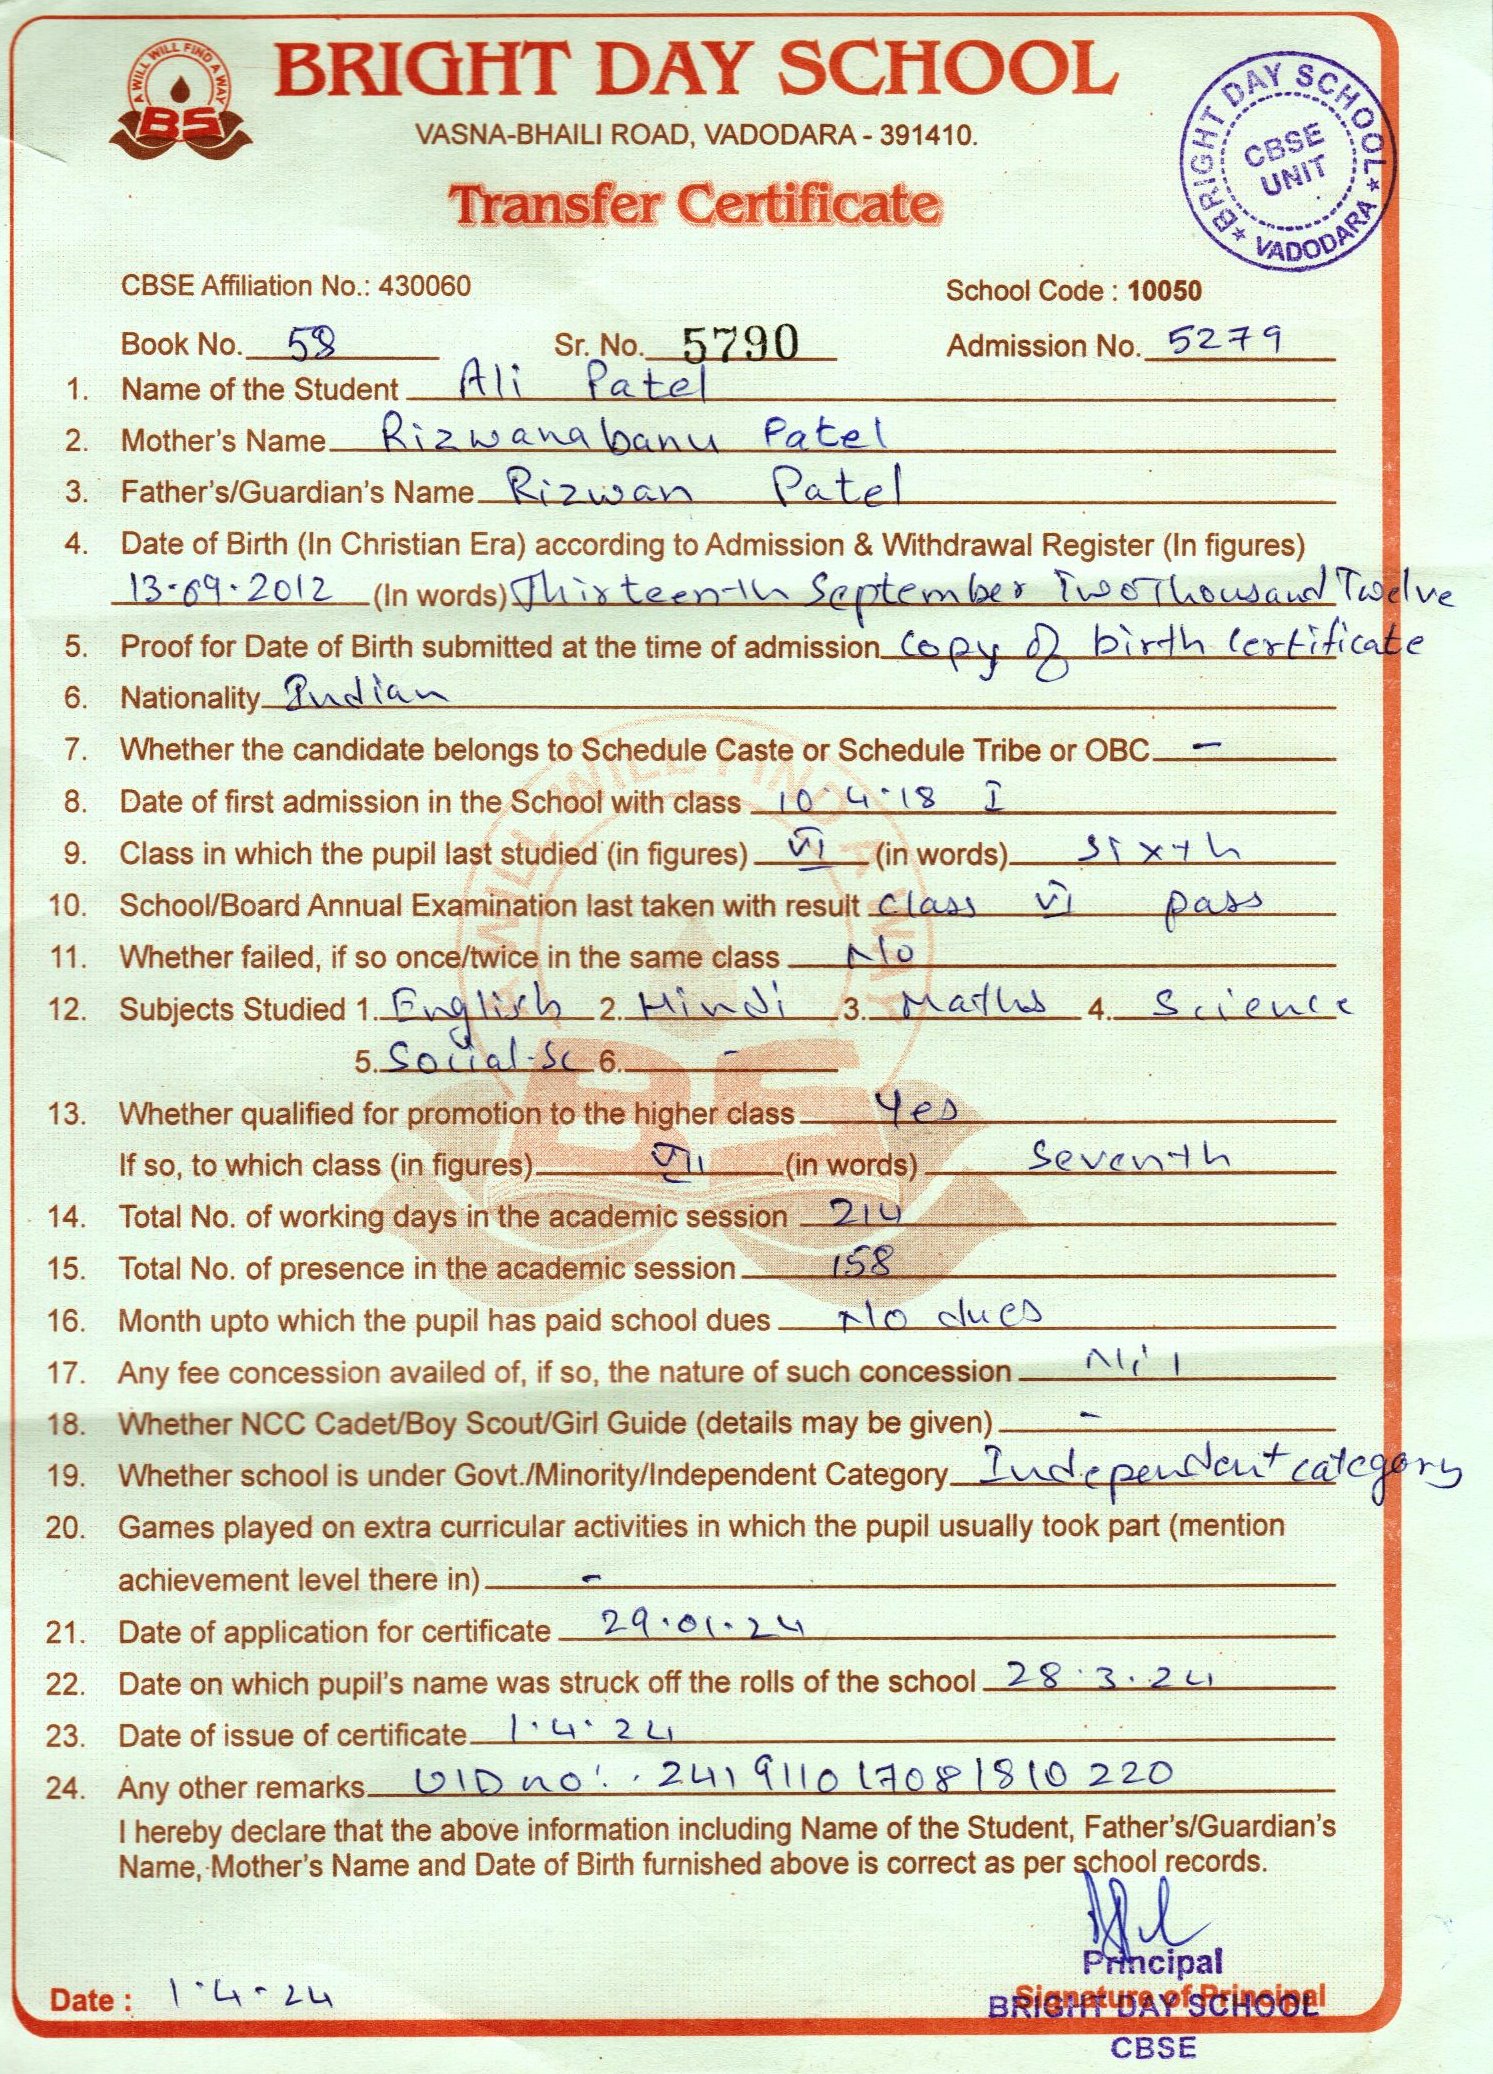 A WILL WILL FIND A WAY
BS
BRIGHT DAY SCHOOL
VASNA-BHAILI ROAD, VADODARA - 391410.
Transfer Certificate
BRIGHT DAY SCHOOL
CBSE UNIT
VADODARA
CBSE Affiliation No.: 430060 School Code : 10050
Book No. 58 Sr. No. 5790 Admission No. 5279
1. Name of the Student Ali Patel
2. Mother's Name Rizwanabanu Patel
3. Father's/Guardian's Name Rizwan Patel
4. Date of Birth (In Christian Era) according to Admission & Withdrawal Register (In figures)
13.09.2012 (In words) Thirteenth September Two Thousand Twelve
5. Proof for Date of Birth submitted at the time of admission copy of birth certificate
6. Nationality Indian
7. Whether the candidate belongs to Schedule Caste or Schedule Tribe or OBC -
8. Date of first admission in the School with class 10.4.18 I
9. Class in which the pupil last studied (in figures) VI (in words) sixth
10. School/Board Annual Examination last taken with result class VI pass
11. Whether failed, if so once/twice in the same class No
12. Subjects Studied 1. English 2. Hindi 3. Maths 4. Science
5. Social.Sc 6. -
13. Whether qualified for promotion to the higher class Yes
If so, to which class (in figures) VII (in words) Seventh
14. Total No. of working days in the academic session 214
15. Total No. of presence in the academic session 158
16. Month upto which the pupil has paid school dues No dues
17. Any fee concession availed of, if so, the nature of such concession Nil
18. Whether NCC Cadet/Boy Scout/Girl Guide (details may be given) -
19. Whether school is under Govt./Minority/Independent Category Independent category
20. Games played on extra curricular activities in which the pupil usually took part (mention
achievement level there in) -
21. Date of application for certificate 29.01.24
22. Date on which pupil's name was struck off the rolls of the school 28.3.24
23. Date of issue of certificate 1.4.24
24. Any other remarks UID no: 241911017081810220
I hereby declare that the above information including Name of the Student, Father's/Guardian's
Name, Mother's Name and Date of Birth furnished above is correct as per school records.
Principal
Date : 1.4.24 Signature of Principal
BRIGHT DAY SCHOOL
CBSE